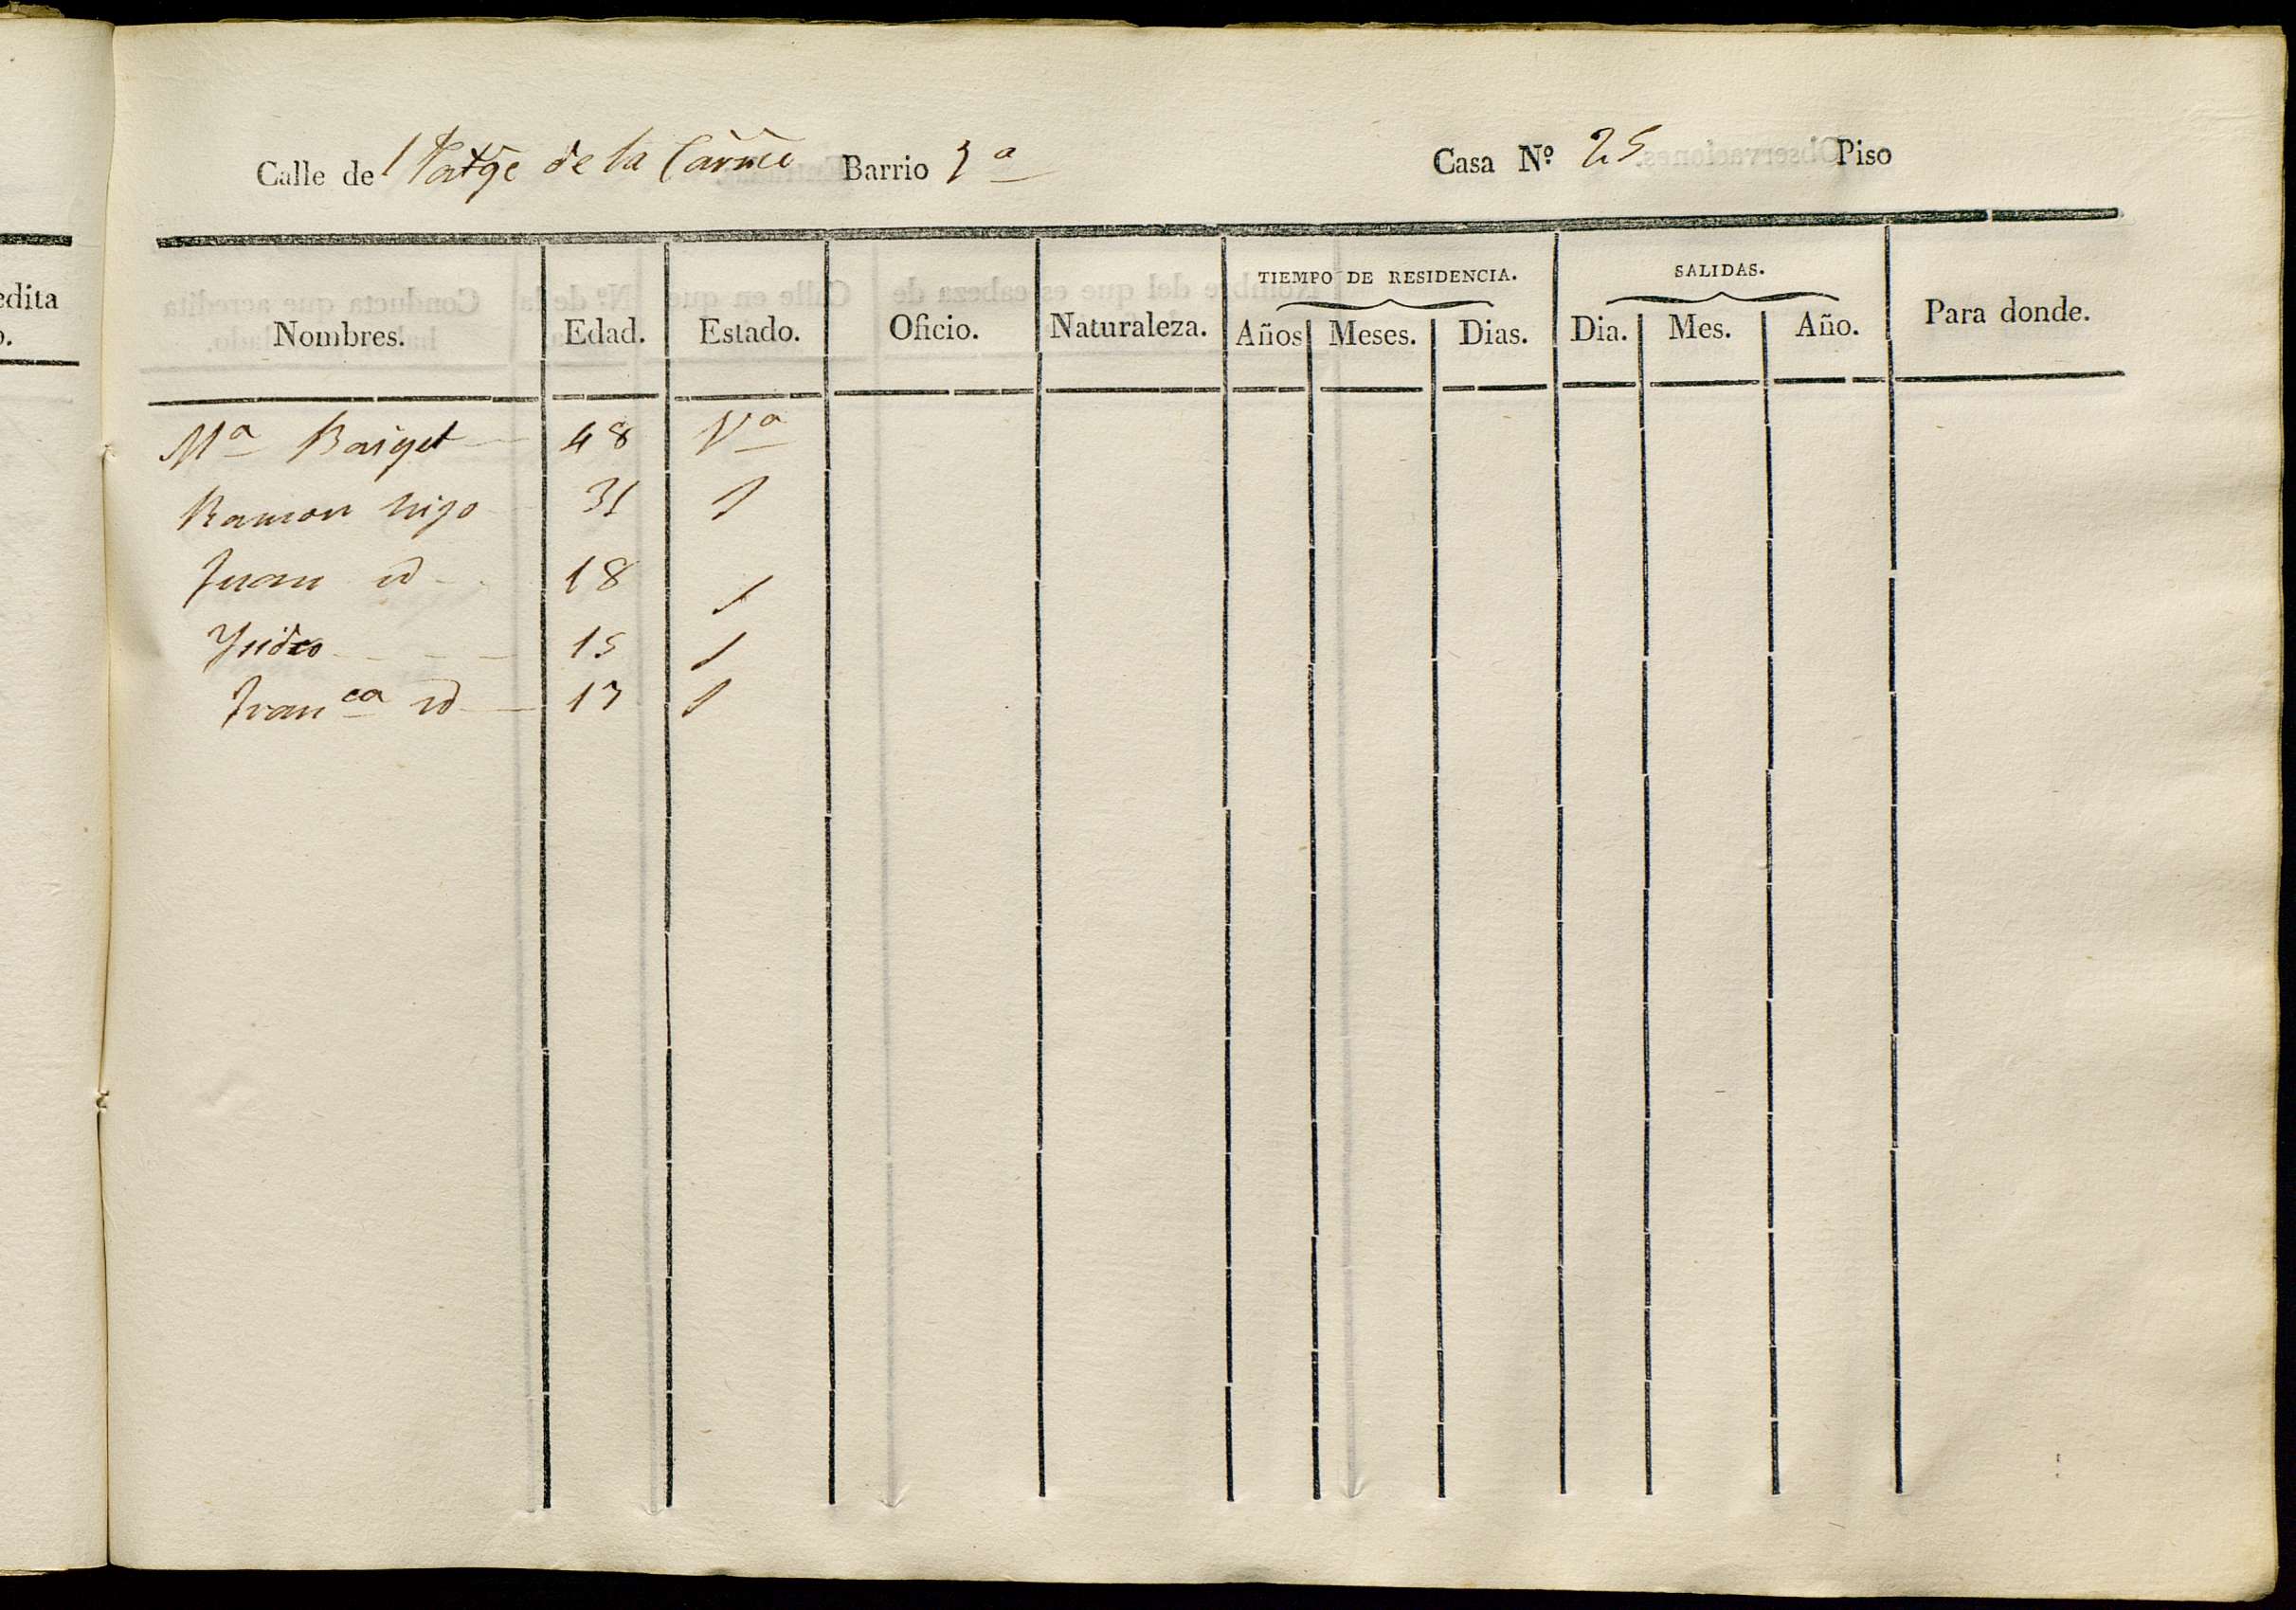 edita
o.
Calle de l Patge de la Carnic Barrio 3ª Casa Nº 25 Piso
TIEMPO DE RESIDENCIA. SALIDAS.
Nombres. Edad. Estado. Oficio. Naturaleza. Años Meses. Dias. Dia. Mes. Año. Para donde.
Mª Baiget 48 Vª
Ramon hijo 31 S
Juan id 18 S
Ysidro 15 S
Franca id 17 S